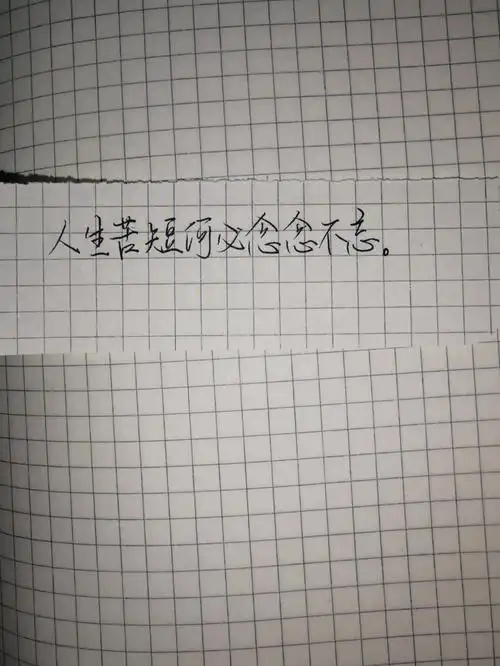 人生苦短何必念念不忘。